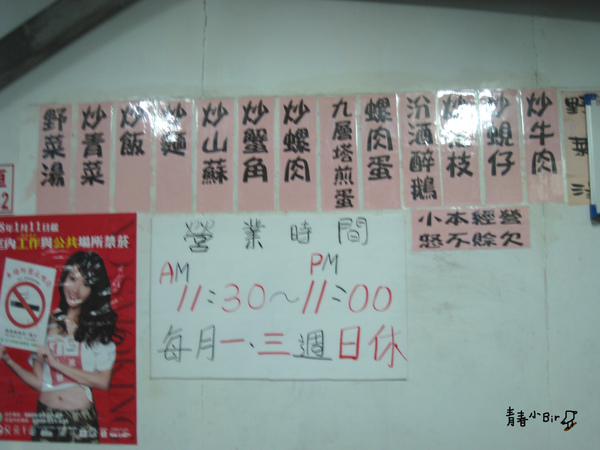 野菜湯
炒青菜
炒飯
炒麵
炒山蘇
炒蟹角
炒螺肉
九層塔煎蛋
螺肉蛋
汾酒醉鵝
炒蜆仔
炒牛肉
野菜
小本經營
恕不賒欠
營業時間
AM PM
11:30~11:00
每月一、三週日休
8年1月11日起
室內工作與公共場所禁菸
青春小Bird